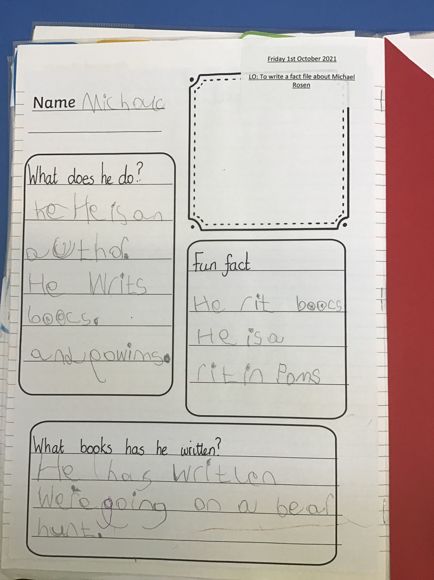 Friday 1st October 2021
LO: To write a fact file about Michael
Rosen
Name Michoulc
What does he do?
He is an
author.
He Writs
boocs.
and powims.
Fun fact
He rit boocs
He is a
ritin Poms
What books has he written?
He has written
We're going on a bear
hunt.